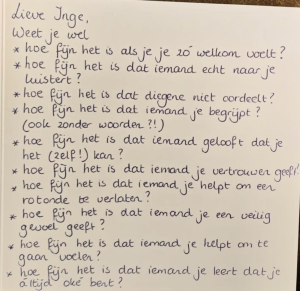 Lieve Inge,
Weet je wel
* hoe fijn het is als je je zó welkom voelt?
* hoe fijn het is dat iemand echt naar je
luistert?
* hoe fijn het is dat diegene niet oordeelt?
* hoe fijn het is dat iemand je begrijpt?
(ook zonder woorden?!)
* hoe fijn het is dat iemand gelooft dat je
het (zelf!) kan?
* hoe fijn het is dat iemand je vertrouwen geeft?
* hoe fijn het is dat iemand je helpt om een
rotonde te verlaten?
* hoe fijn het is dat iemand je een veilig
gevoel geeft?
* hoe fijn het is dat iemand je helpt om te
gaan voelen?
* hoe fijn het is dat iemand je leert dat je
altijd oké bent?